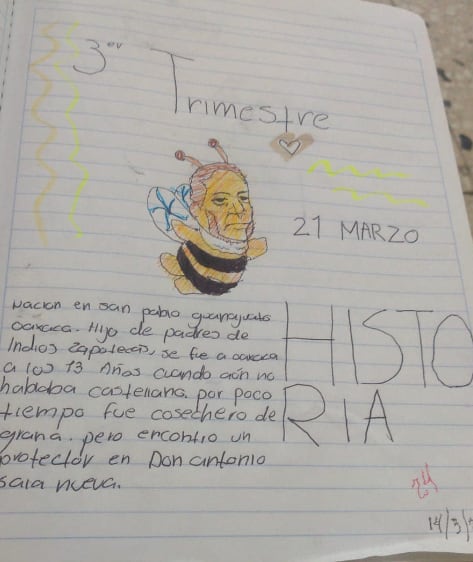 3er
Trimestre
21 MARZO
Nacion en san pablo guanguato
oaxaca. Hijo de padres de
Indios zapotecas, se fue a oaxaca
a los 13 Años cuando aún no
hablaba castellano. por poco
tiempo fue cosechero de
grana. pero encontro un
protector en Don antonio
sala nueva.
HISTO
RIA
14/3/